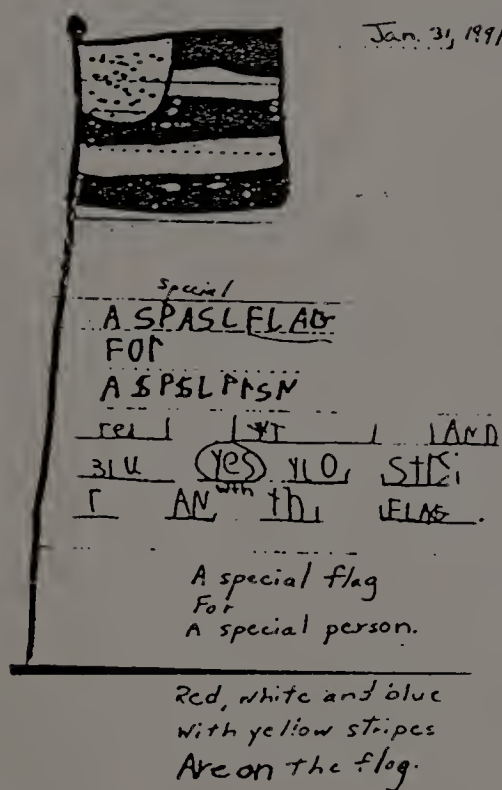 Jan. 31, 1991
special
A SPASL FLAG
FOr
A SPSL PrSN
red wr AND
BLU yes YLO Stri
wth
r AN th FLAG.
A special flag
For
A special person.
Red, white and blue
with yellow stripes
Are on the flag.